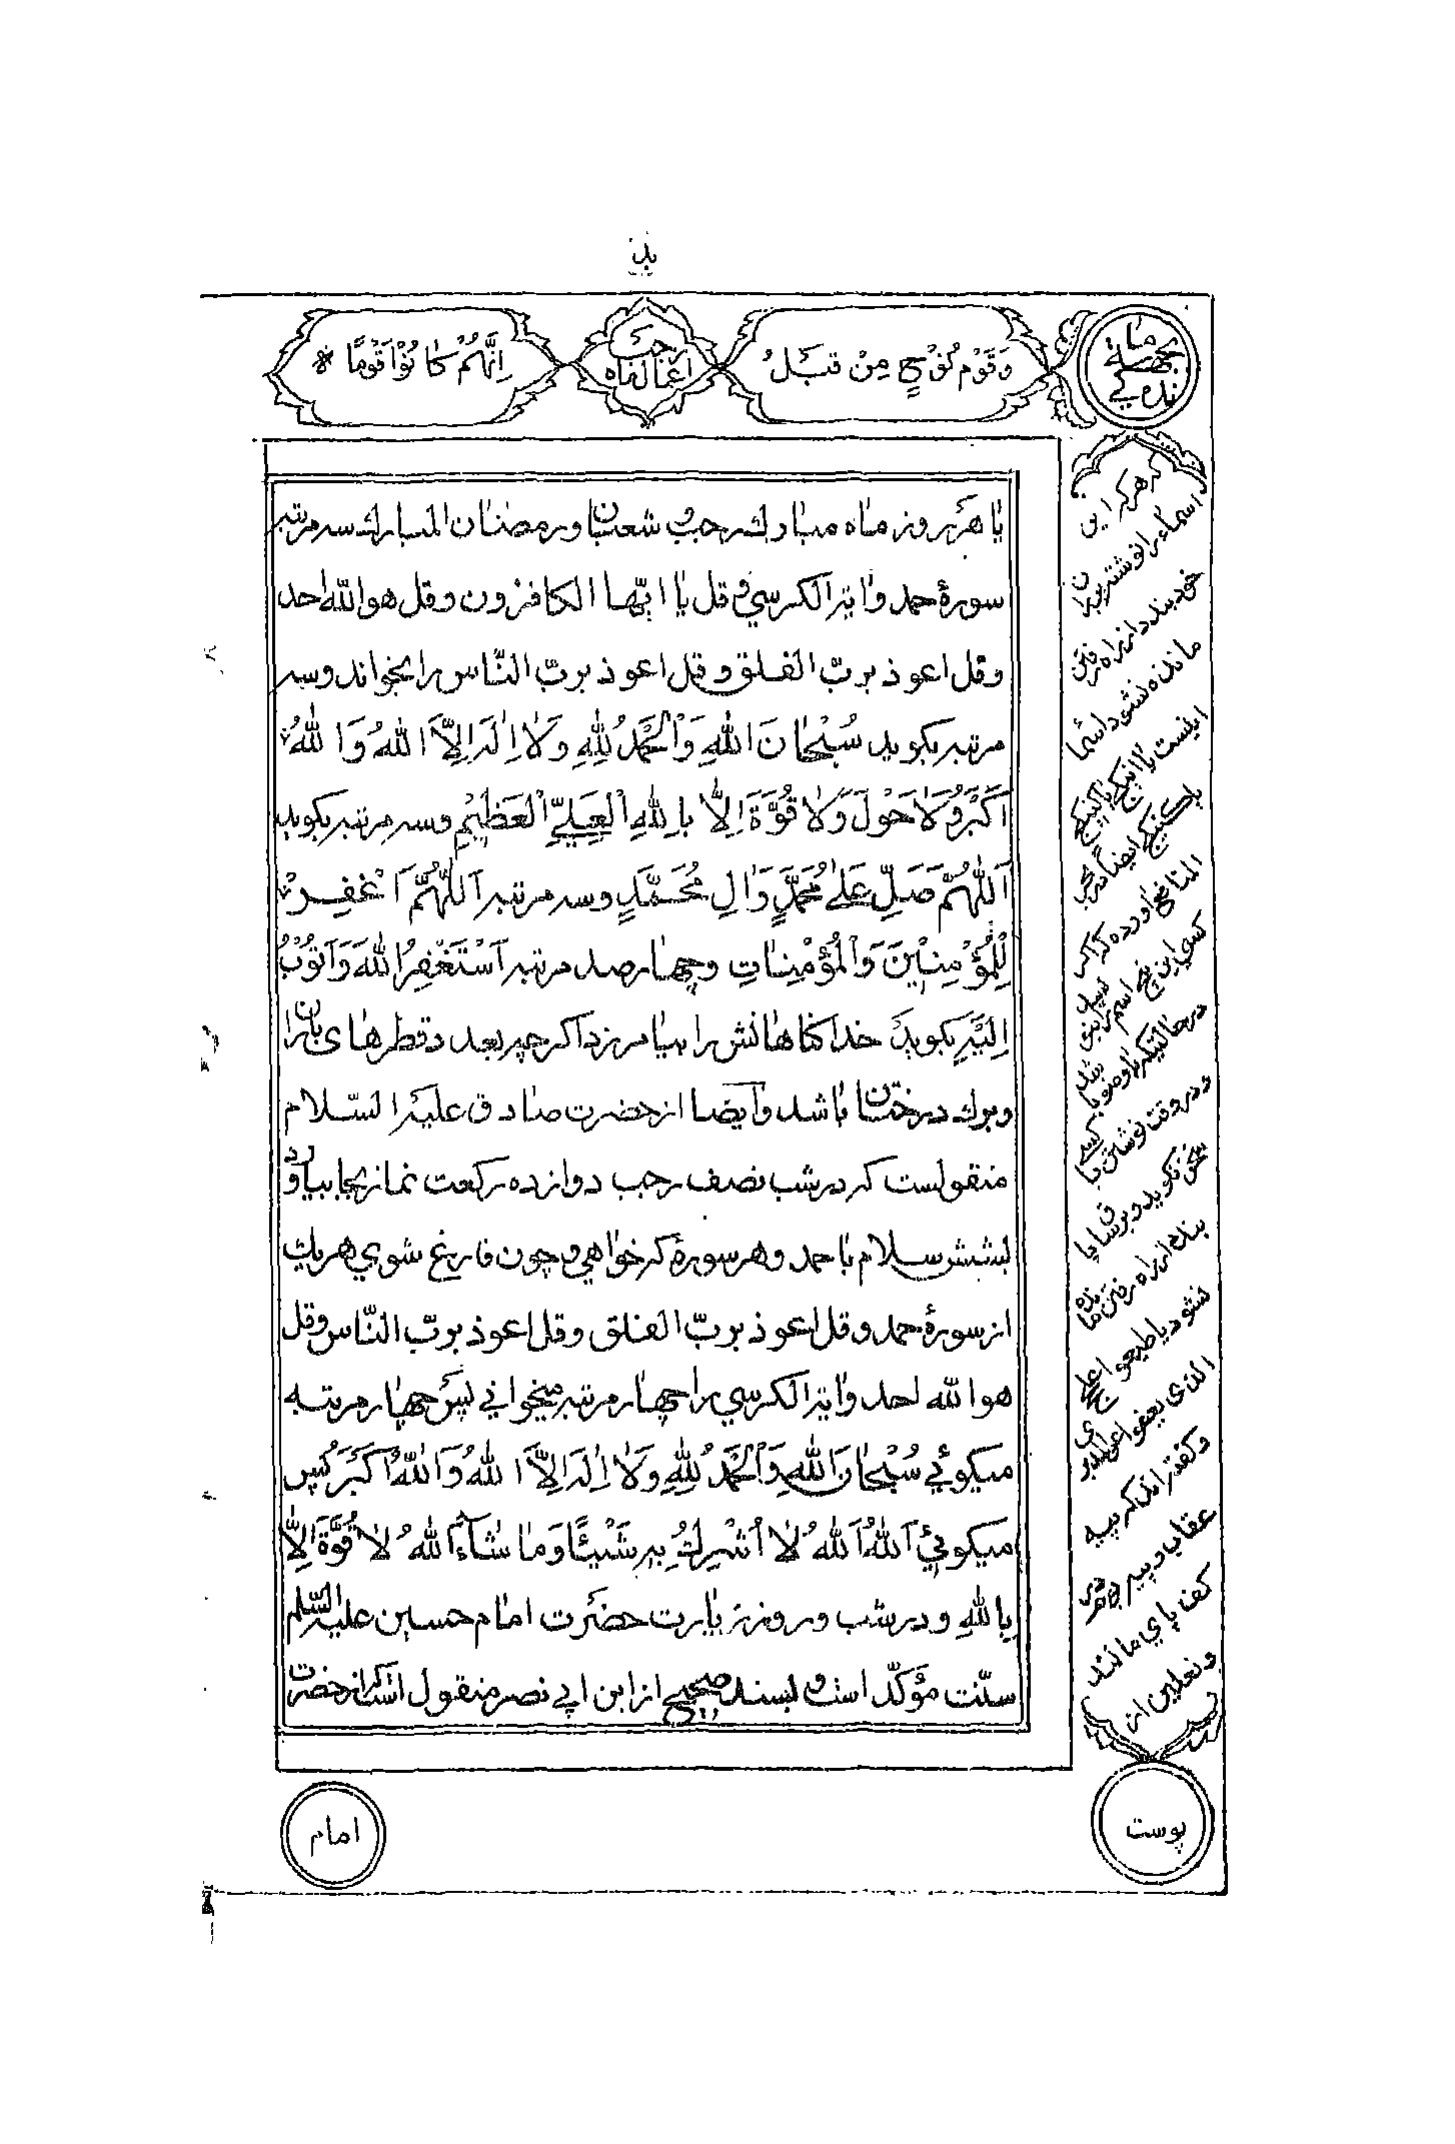 وَقَوْمِ نُوْحٍ مِنْ قَبْلُ
اعمال ماه رجب
اِنَّهُمْ كَانُوْا قَوْمًا *
یا هر روز ماه مبارك رجب و شعبان و رمضان المبارك سه مرتبه
سورۀ حمد و ایة الكرسي و قل یا ایّها الكافرون و قل هو اللّه احد
و قل اعوذ بربّ الفلق و قل اعوذ بربّ النّاس را بخواند و سه
مرتبه بكوید سُبْحَانَ اللهِ وَالْحَمْدُ لِلّٰهِ وَلَا اِلٰهَ اِلَّا اللهُ وَاللهُ
اَكْبَرُ وَلَا حَوْلَ وَلَا قُوَّةَ اِلَّا بِاللهِ الْعَلِيِّ الْعَظِيْمِ و سه مرتبه بكوید
اَللّٰهُمَّ صَلِّ عَلٰى مُحَمَّدٍ وَاٰلِ مُحَمَّدٍ و سه مرتبه اَللّٰهُمَّ اغْفِرْ
لِلْمُؤْمِنِيْنَ وَالْمُؤْمِنَاتِ و چهارصد مرتبه اَسْتَغْفِرُ اللهَ وَاَتُوْبُ
اِلَيْهِ بكوید خدا كناهانش را بیامرزد اكرچه بعدد قطرهای باران
و برك درختان باشد و ایضا از حضرت صادق علیه السّلام
منقولست كه در شب نصف رجب دوازده ركعت نماز بجا بیاورد
بشش سلام با حمد و هر سورۀ كه خواهی و چون فارغ شوي هر یك
از سورۀ حمد و قل اعوذ بربّ الفلق و قل اعوذ بربّ النّاس و قل
هو الله احد و ایة الكرسي را چهار مرتبه میخواني پس چهار مرتبه
میكوئي سُبْحَانَ اللهِ وَالْحَمْدُ لِلّٰهِ وَلَا اِلٰهَ اِلَّا اللهُ وَاللهُ اَكْبَرُ پس
میكوئي اَللهُ اَللهُ لَا اُشْرِكُ بِهِ شَيْئًا وَمَا شَاءَ اللهُ لَا قُوَّةَ اِلَّا
بِاللهِ و در شب و روز زیارت حضرت امام حسین علیه السّلم
سنّت مؤكّد است و بسند صحیح از ابن ابي نصر منقول است كه از حضرت
كه هر كه این
اسماء را نوشته بران
خود بندد از راه رفتن
مانده نشود اسما
اینست
المنافع اورده كه اكر
كسي این پنج اسم را بنویسد
در حالتیكه با وضو باشد
و در وقت نوشتن با كسے
سخن نكوید و بر ساق پا
بندد از راه رفتن مانده
نشود
و كفته اند كه پیه
عقاب و پیه
كف پاي مالند
و نعلین از
پوست
امام